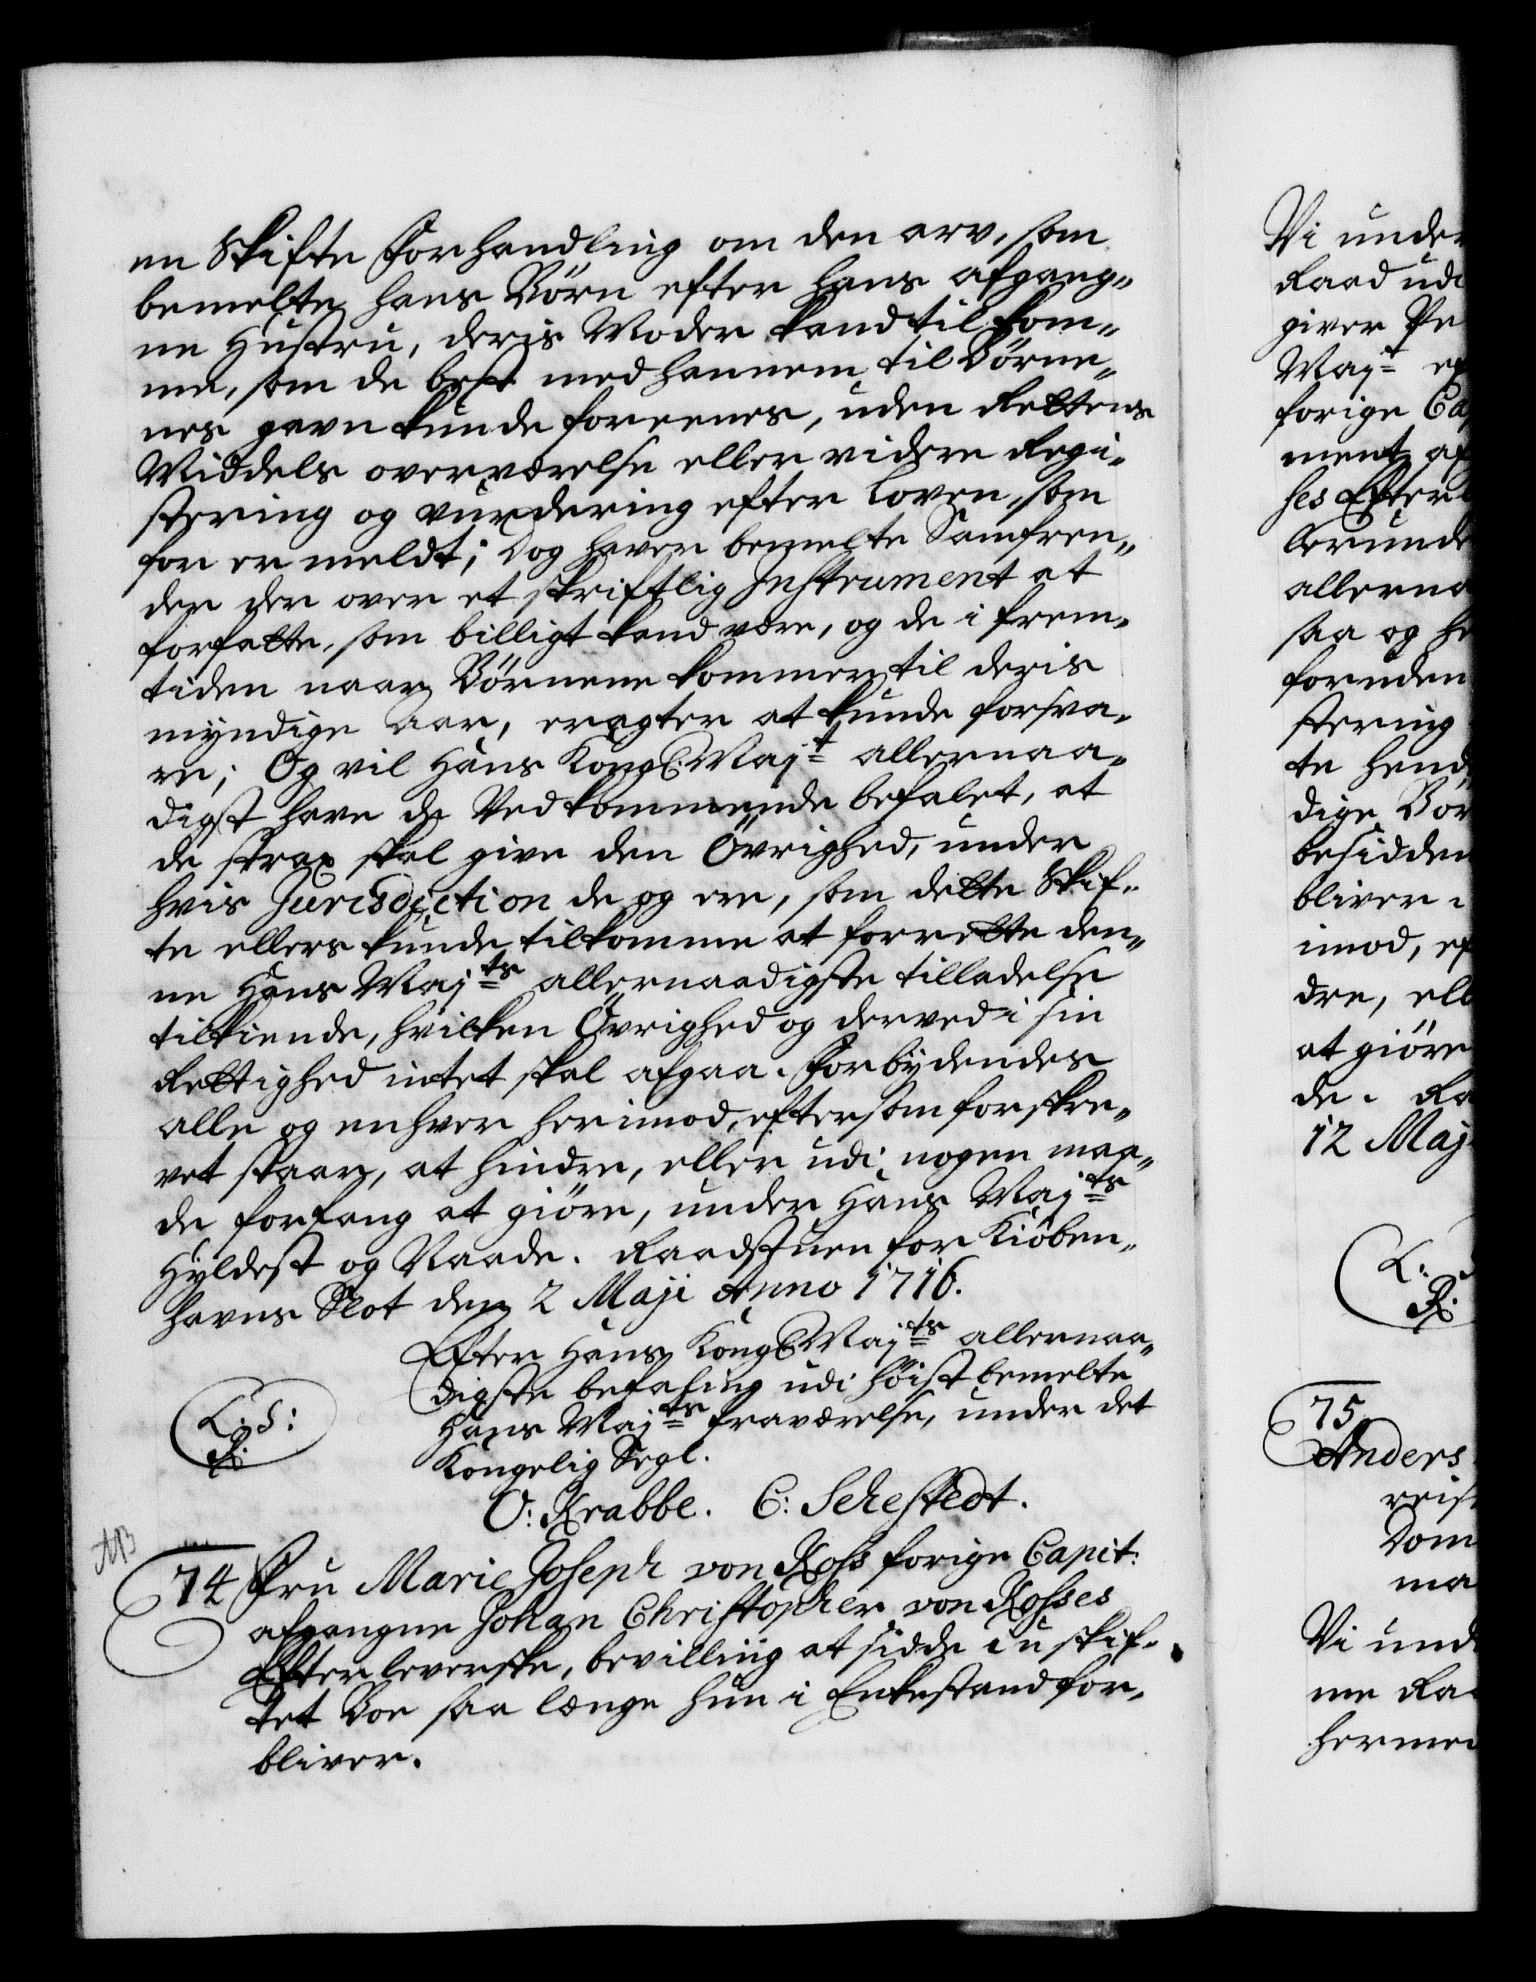 en Skifte Forhandling om den arv, som
bemelte hans Börn efter hans afgang„
ne Hustru, deris Moder kand tilkom„
me, som de best med hannem til Börne„
nes gavn kunde foreenes, uden Rettens
Middels overværelse eller videre Regi„
stering og vurdering efter Loven, som
for er meldt; Dog haver bemelte Samfren„
der der over et skriftlig Instrument at
forfatte, som billigt kand være, og de i frem„
tiden naar Börnene kommer til deris
myndige Aar, eragter at kunde forsva„
re; Og vil Hans Kongl: Maj:t allernaa„
digst have de Vedkommende befalet, at
de strax skal give den Övrighed, under
hvis Jurisdiction de og ere, som dette Skif„
te ellers kunde tilkomme at forrette den„
ne Hans Maj:ts allernaadigste tilladelse
tilkiende, hvilken Övrighed og derved i sin
Rettighed intet skal afgaa. Forbydendes
alle og enhver herimod, eftersom forskre„
vet staar, at hindre, eller udi nogen maa„
de forfang at giöre, under Hans Maj:ts
Hyldest og Naade. Raadstuen for Kiöben„
havns Slot den 2 Maji Anno 1716.
Efter Hans Kongl: Maj:ts allernaa„
digste befaling udi höist bemelte
Hans Maj:ts fraværelse, under det
Kongelig Segl.
L: S:
R.
O: Krabbe. C: Sehestedt.
74 Fru Marie Joseph von Ross forige Capit:
afgangne Johan Christopher von Rosses
Efterleverske, bevilling at sidde i u skif„
tet Boe saa længe hun i Enkestand for„
bliver.
Vi under
Raad udi
giver
Maj:t
forige
ment
ses Efter
allerna
saa og
foruden
stering
te
dige Bör
besidden
bliver
imod,
dre,
at giöre
de.
12 Maj
L:
R.
75
Anders
Dom
ma
Vi und
me
hermed